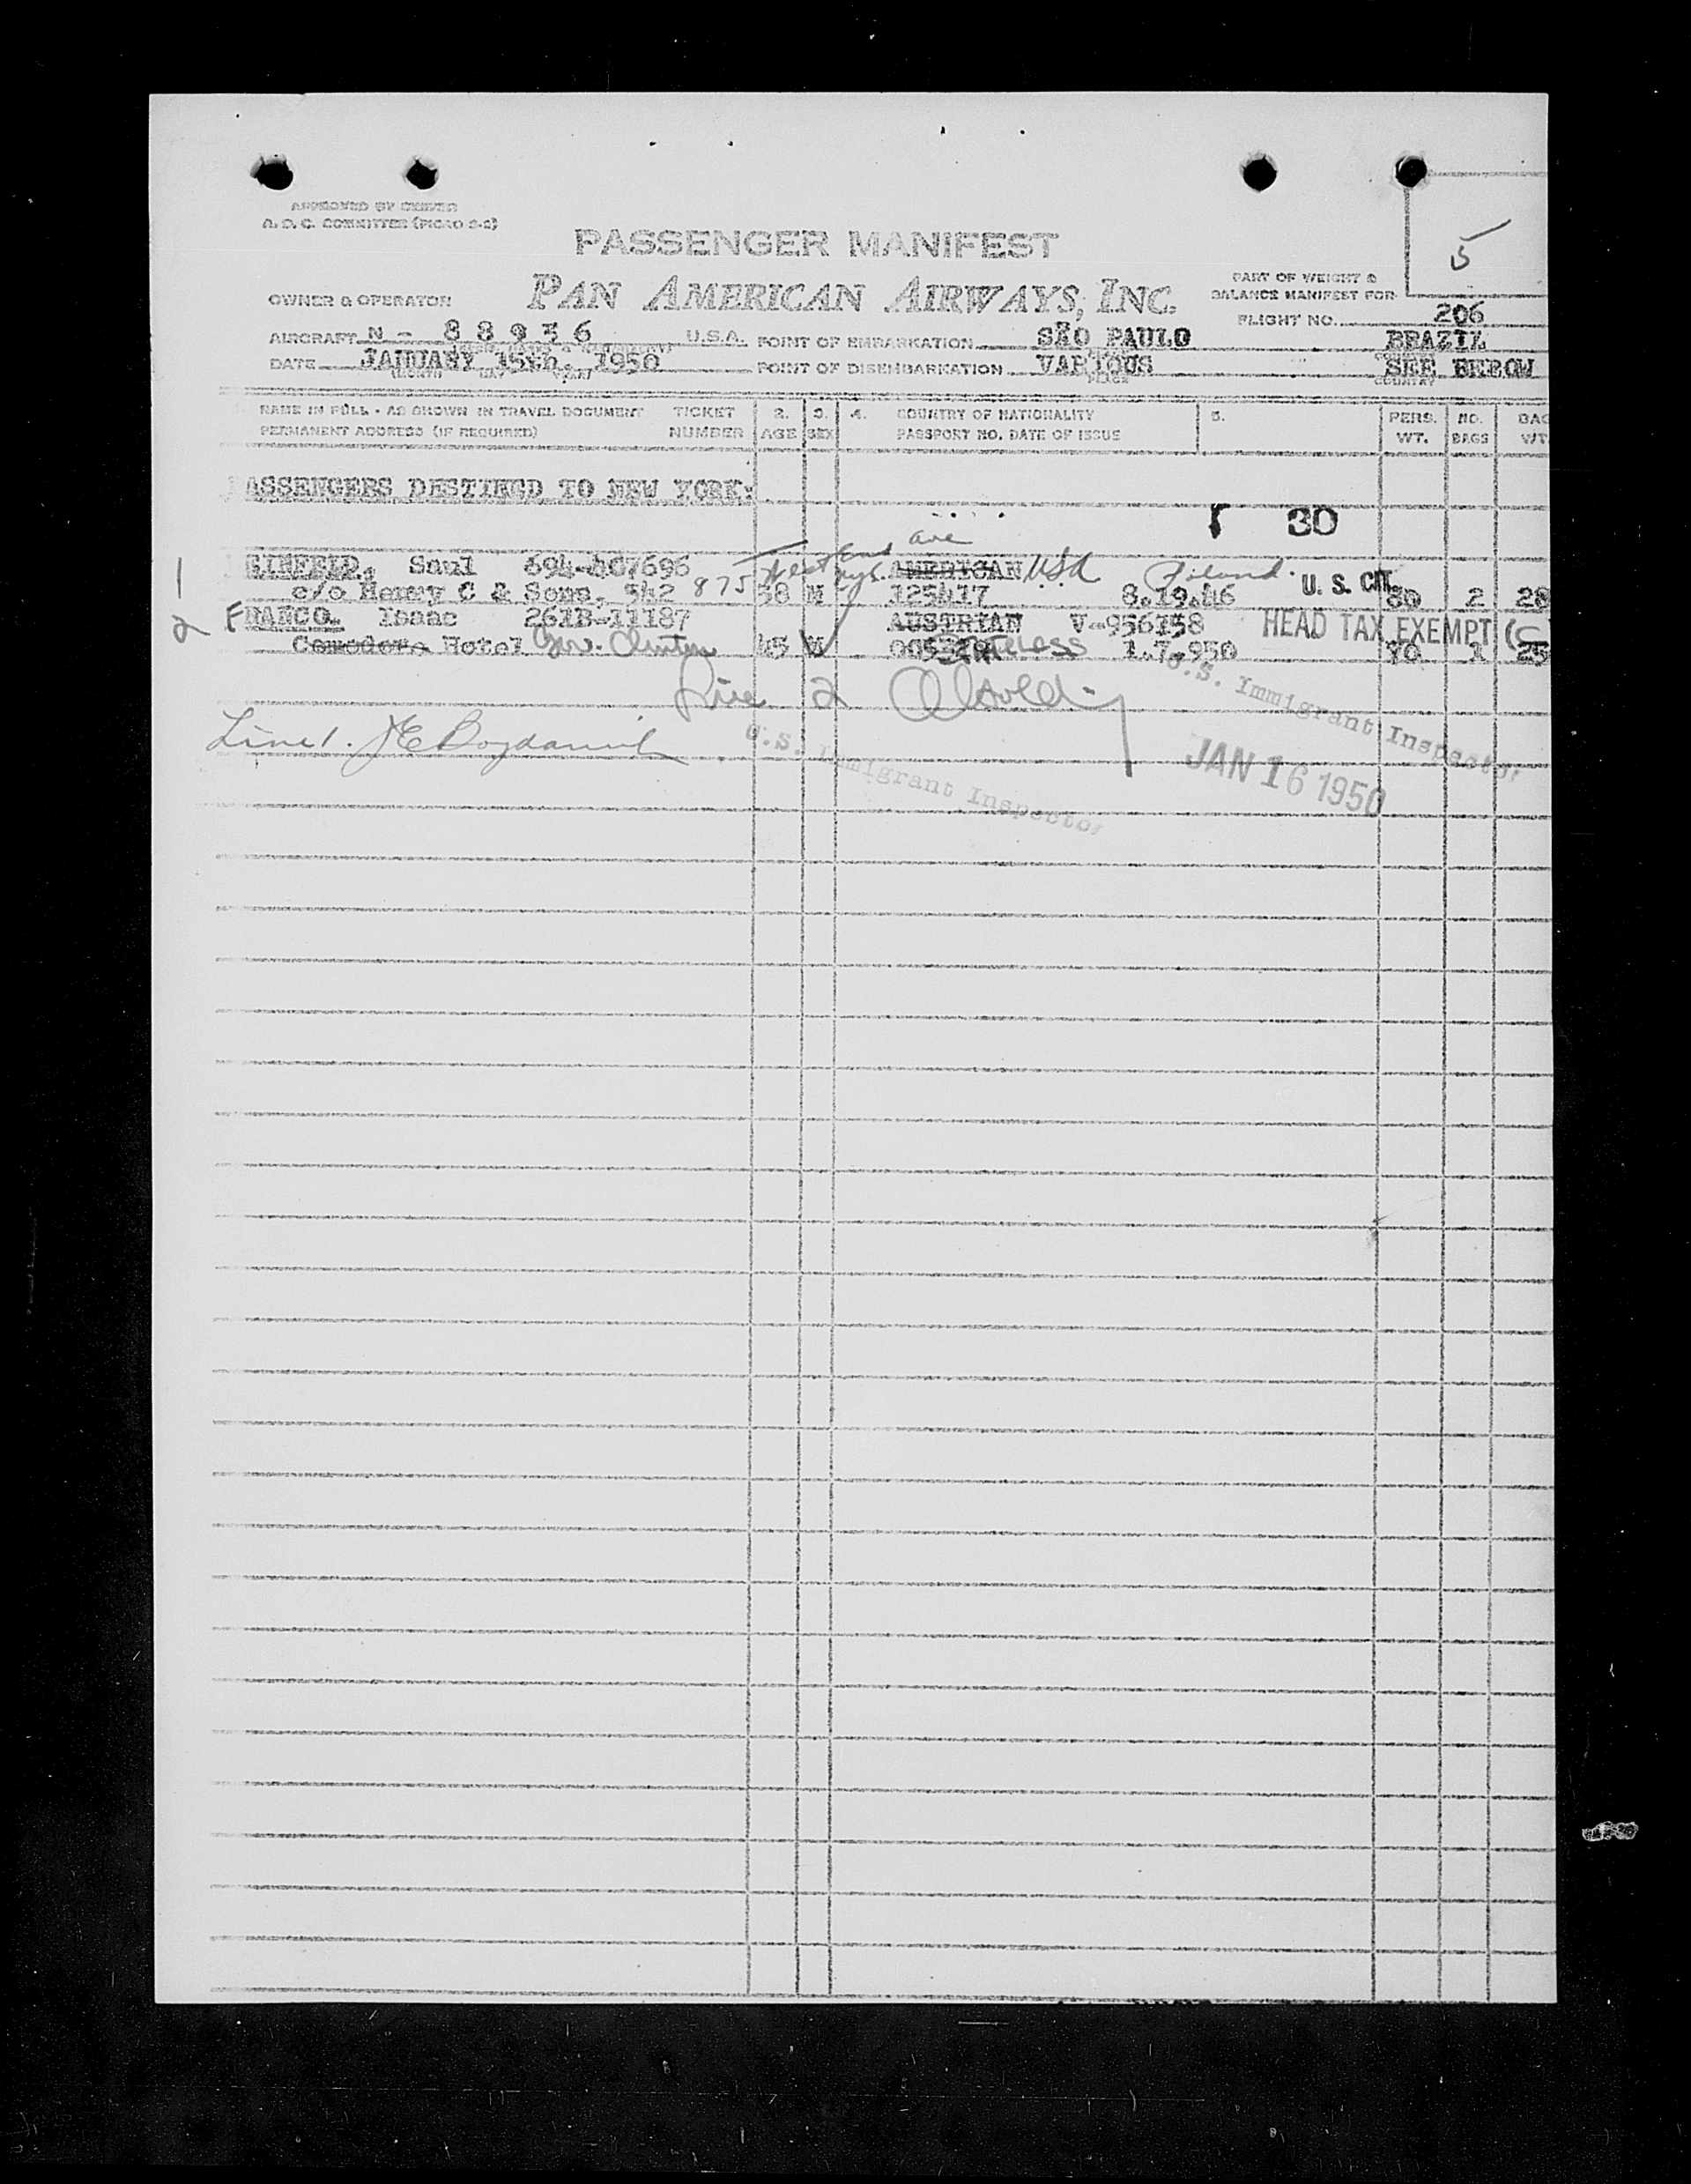 APPROVED BY CENTER
A.D.C. COMMITTEE (PICAO 2-2)
5
PASSENGER MANIFEST
PAN AMERICAN AIRWAYS, INC.
PART OF WEIGHT &
BALANCE MANIFEST FOR
OWNER & OPERATOR
FLIGHT NO. 206
AIRCRAFT N - 88936 U.S.A. POINT OF EMBARKATION SÃO PAULO BRAZIL
DATE JANUARY 15th. 1950 POINT OF DISEMBARKATION VARIOUS SEE BEBOW
(MONTH DAY YEAR) PLACE COUNTRY
NAME IN FULL - AS SHOWN IN TRAVEL DOCUMENT TICKET 2. 3. 4. COUNTRY OF NATIONALITY 5. PERS. NO. BAG
PERMANENT ADDRESS (IF REQUIRED) NUMBER AGE SEX PASSPORT NO. DATE OF ISSUE WT. BAGS WT
ASSENGERS DESTIEGD TO NEW YORK:
30
875 West End ave nyc.
1 Saul 694-407696 AMERICAN USA Poland. U. S. CIT.
c/o Henry C & Sons, 542 38 M 125417 8.19.46 80 2 28
2 FRANCO. Isaac 261B-11187 AUSTRIAN V-956358 HEAD TAX EXEMPT (C
Comodoro Hotel Gov. Clinton 45 M Stateless 1.7.950 70 1 25
Line 2
U.S. Immigrant Inspector
Line 1.
U.S. Immigrant Inspector
JAN 16 1950